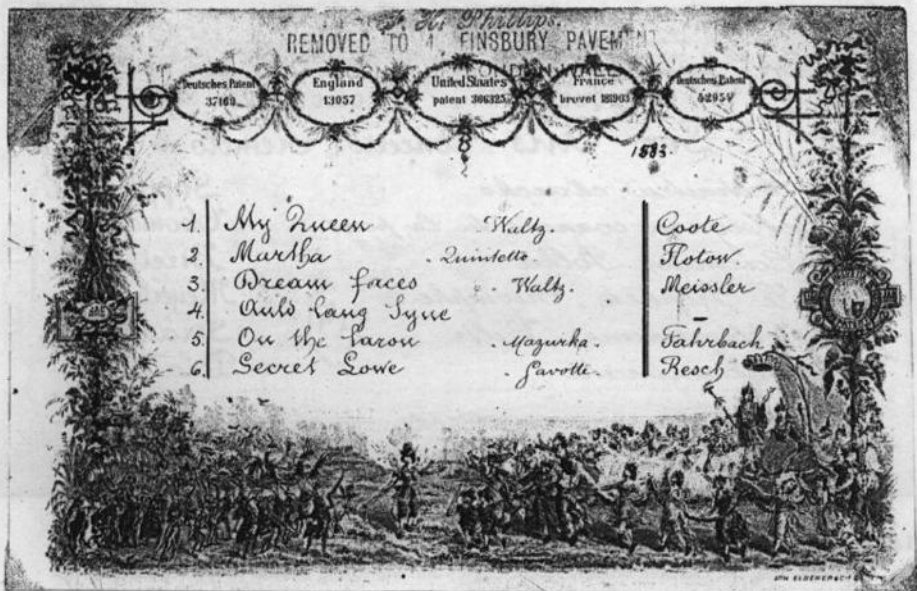 J. H. Phillips.
REMOVED TO 4, FINSBURY PAVEMENT
Deutsches Patent 37169
England 13057
United Staates patent 306325
France brevet 181903
Deutsches Patent
1583.
1. My Queen Waltz. Coote
2. Martha . Quintetto Flotow.
3. Dream faces . Waltz. Meissler
4. Auld lang Syne –
5. On the laron . Mazurka. Fahrbach
6. Secret Lowe . Gavotte. Resch